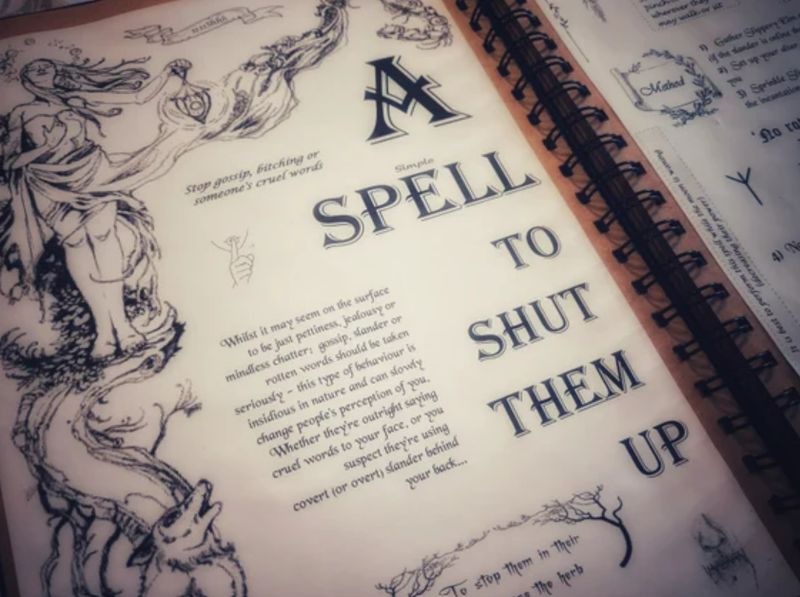 A
Stop gossip, bitching or
someone's cruel words
Simple
SPELL
TO
SHUT
THEM
UP
Whilst it may seem on the surface
to be just pettiness, jealousy or
mindless chatter; gossip, slander or
rotten words should be taken
seriously – this type of behaviour is
insidious in nature and can slowly
change people's perception of you.
Whether they're outright saying
cruel words to your face, or you
suspect they're using
covert (or overt) slander behind
your back...
To stop them in their
the herb
wherever they
may walk or sit
Method
1) Gather Slippery Elm
of the slander is
2) Set up your
you
3) Sprinkle
the incantation
'No
4)
It is best to perform this spell while the moon is waning
(decreasing their power)